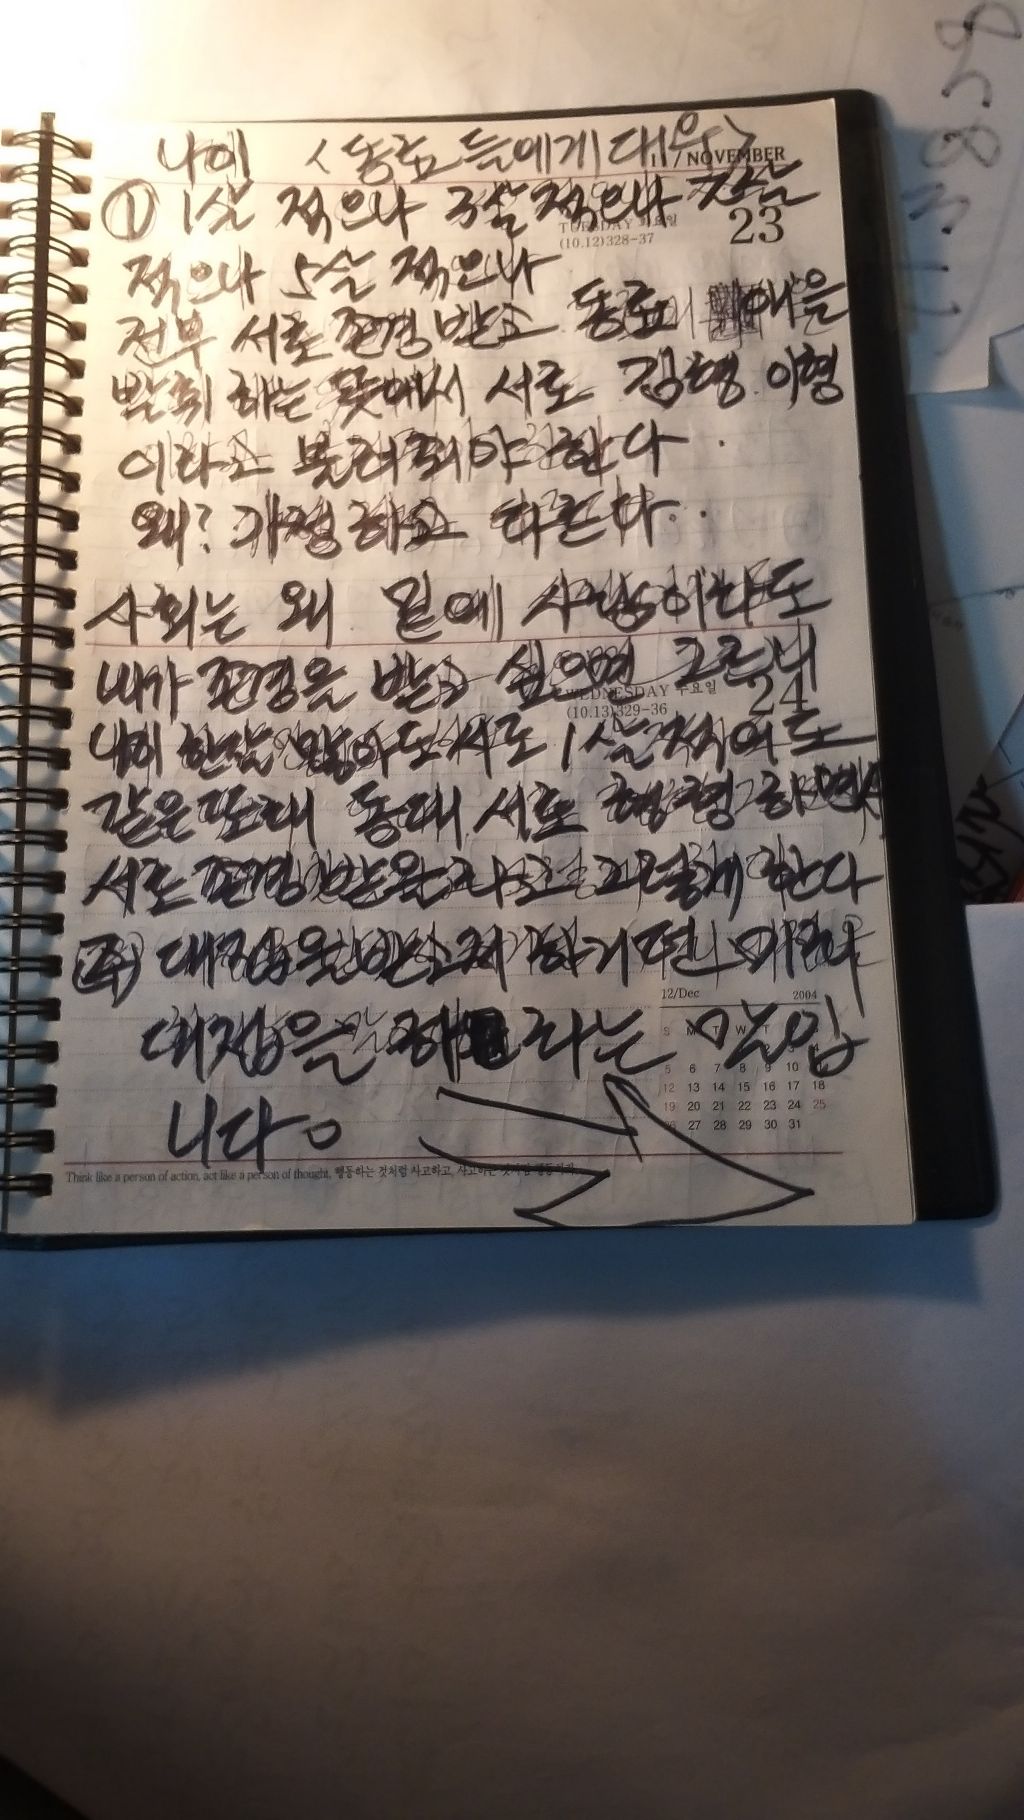 나이 <동료들에게 대우>
11/NOVEMBER
① 1살 적으나 3살 적으나 7살
TUESDAY 화요일
23
(10.12)328-37
적으나 5살 적으나
전부 서로 존경 받고 동료
발휘 하는 뜻에서 서로 김형 이형
이라고 불러줘야 한다.
왜? 가정하고 다른다..
사회는 왜 밑에 사람이라도
내가 존경을 받고 싶으면 그른니
WEDNESDAY 수요일
24
(10.13)329-36
나이 한살 많아도 서로 1살 적어도
같은 또래 동대 서로 형형 하면서
서로 존경 받을라고 그렇게 한다
(주) 대접을 받고저 하거던
대접을 하라는 말입
니다。
12/Dec 2004
S M T W T
5 6 7 8 9 10
12 13 14 15 16 17 18
19 20 21 22 23 24 25
27 28 29 30 31
Think like a person of action, act like a person of thought. 행동하는 것처럼 사고하고, 사고하는 것처럼 행동하라.